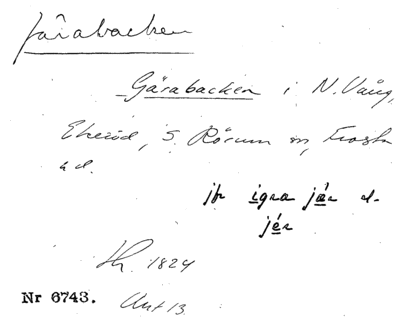 Järabacken
Gärabacken i N. Vång,
Ekeröd, S. Rörum sn, Frosta
hd.
jfr igra jär el.
jér
Hr. 1824
Nr 6743. Ant 13